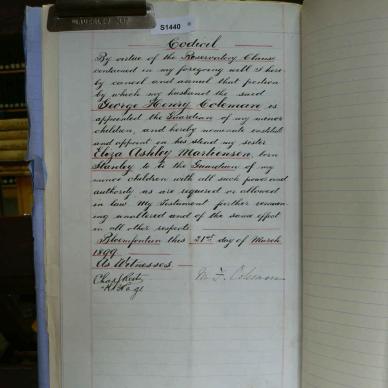 S1440
Codicil
By virtue of the Reservatory Clause
contained in my foregoing will I here-
by cancel and annul that portion
by which my husband the said
George Henry Coleman is
appointed the Guardian of my minor
children, and hereby nominate constitute
and appoint in his stead my sister
Eliza Ashley Marthenson born
Stanley to be the Guardian of my
minor children with all such power and
authority as are required or allowed
in law. My Testament further remain-
ing unaltered and of the same effect
in all other respects.
Bloemfontein this 21st day of March
1899
As Witnesses
Coleman